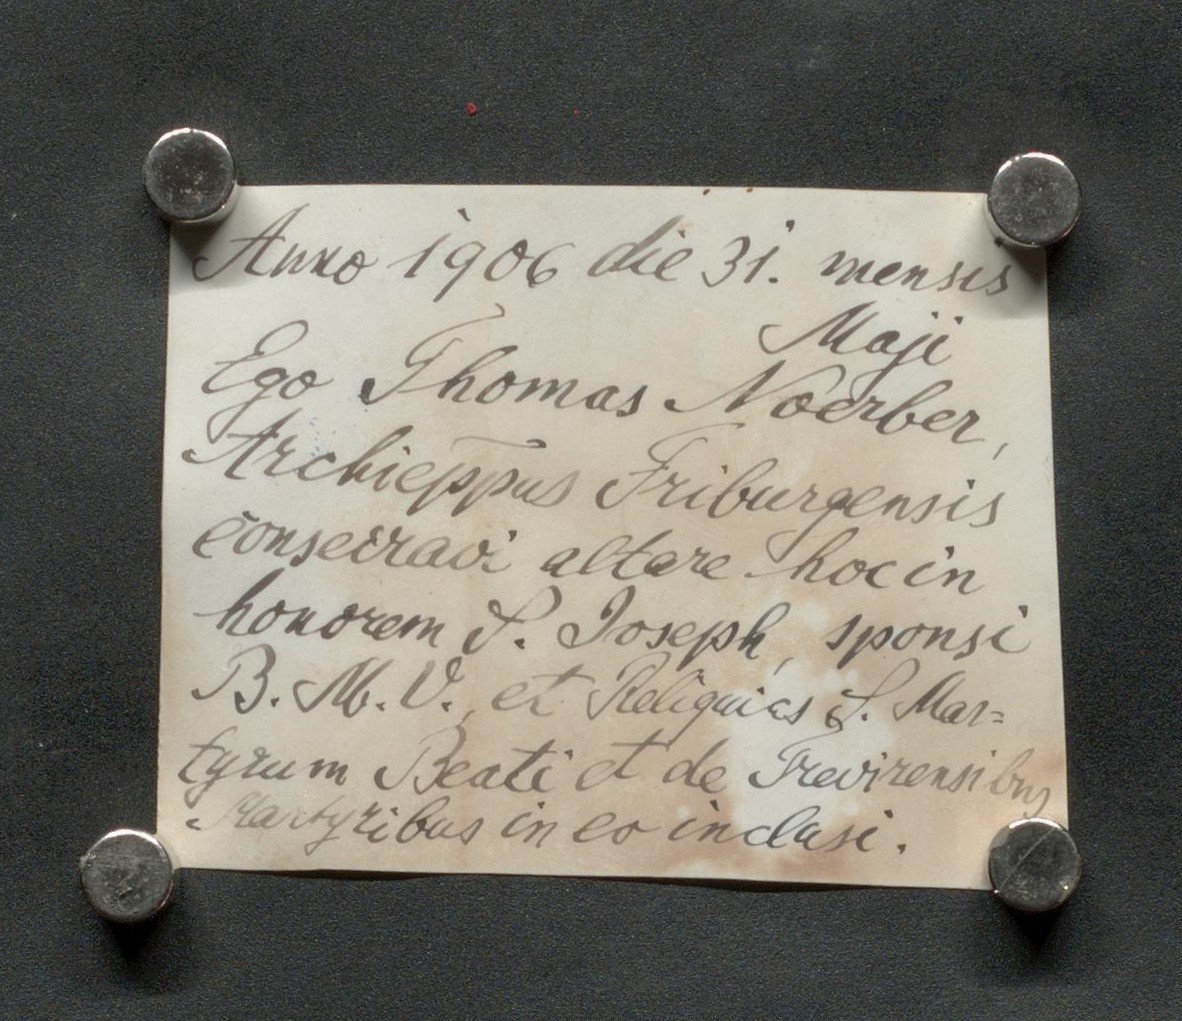 Anno 1906 die 31. mensis
Maji
Ego Thomas Noerber,
Archieppus Friburgensis
consecravi altare hoc in
honorem S. Joseph, sponsi
B. M. V., et Reliquias S. Mar=
tyrum Beati et de Trevirensibus
Martyribus in eo inclusi.